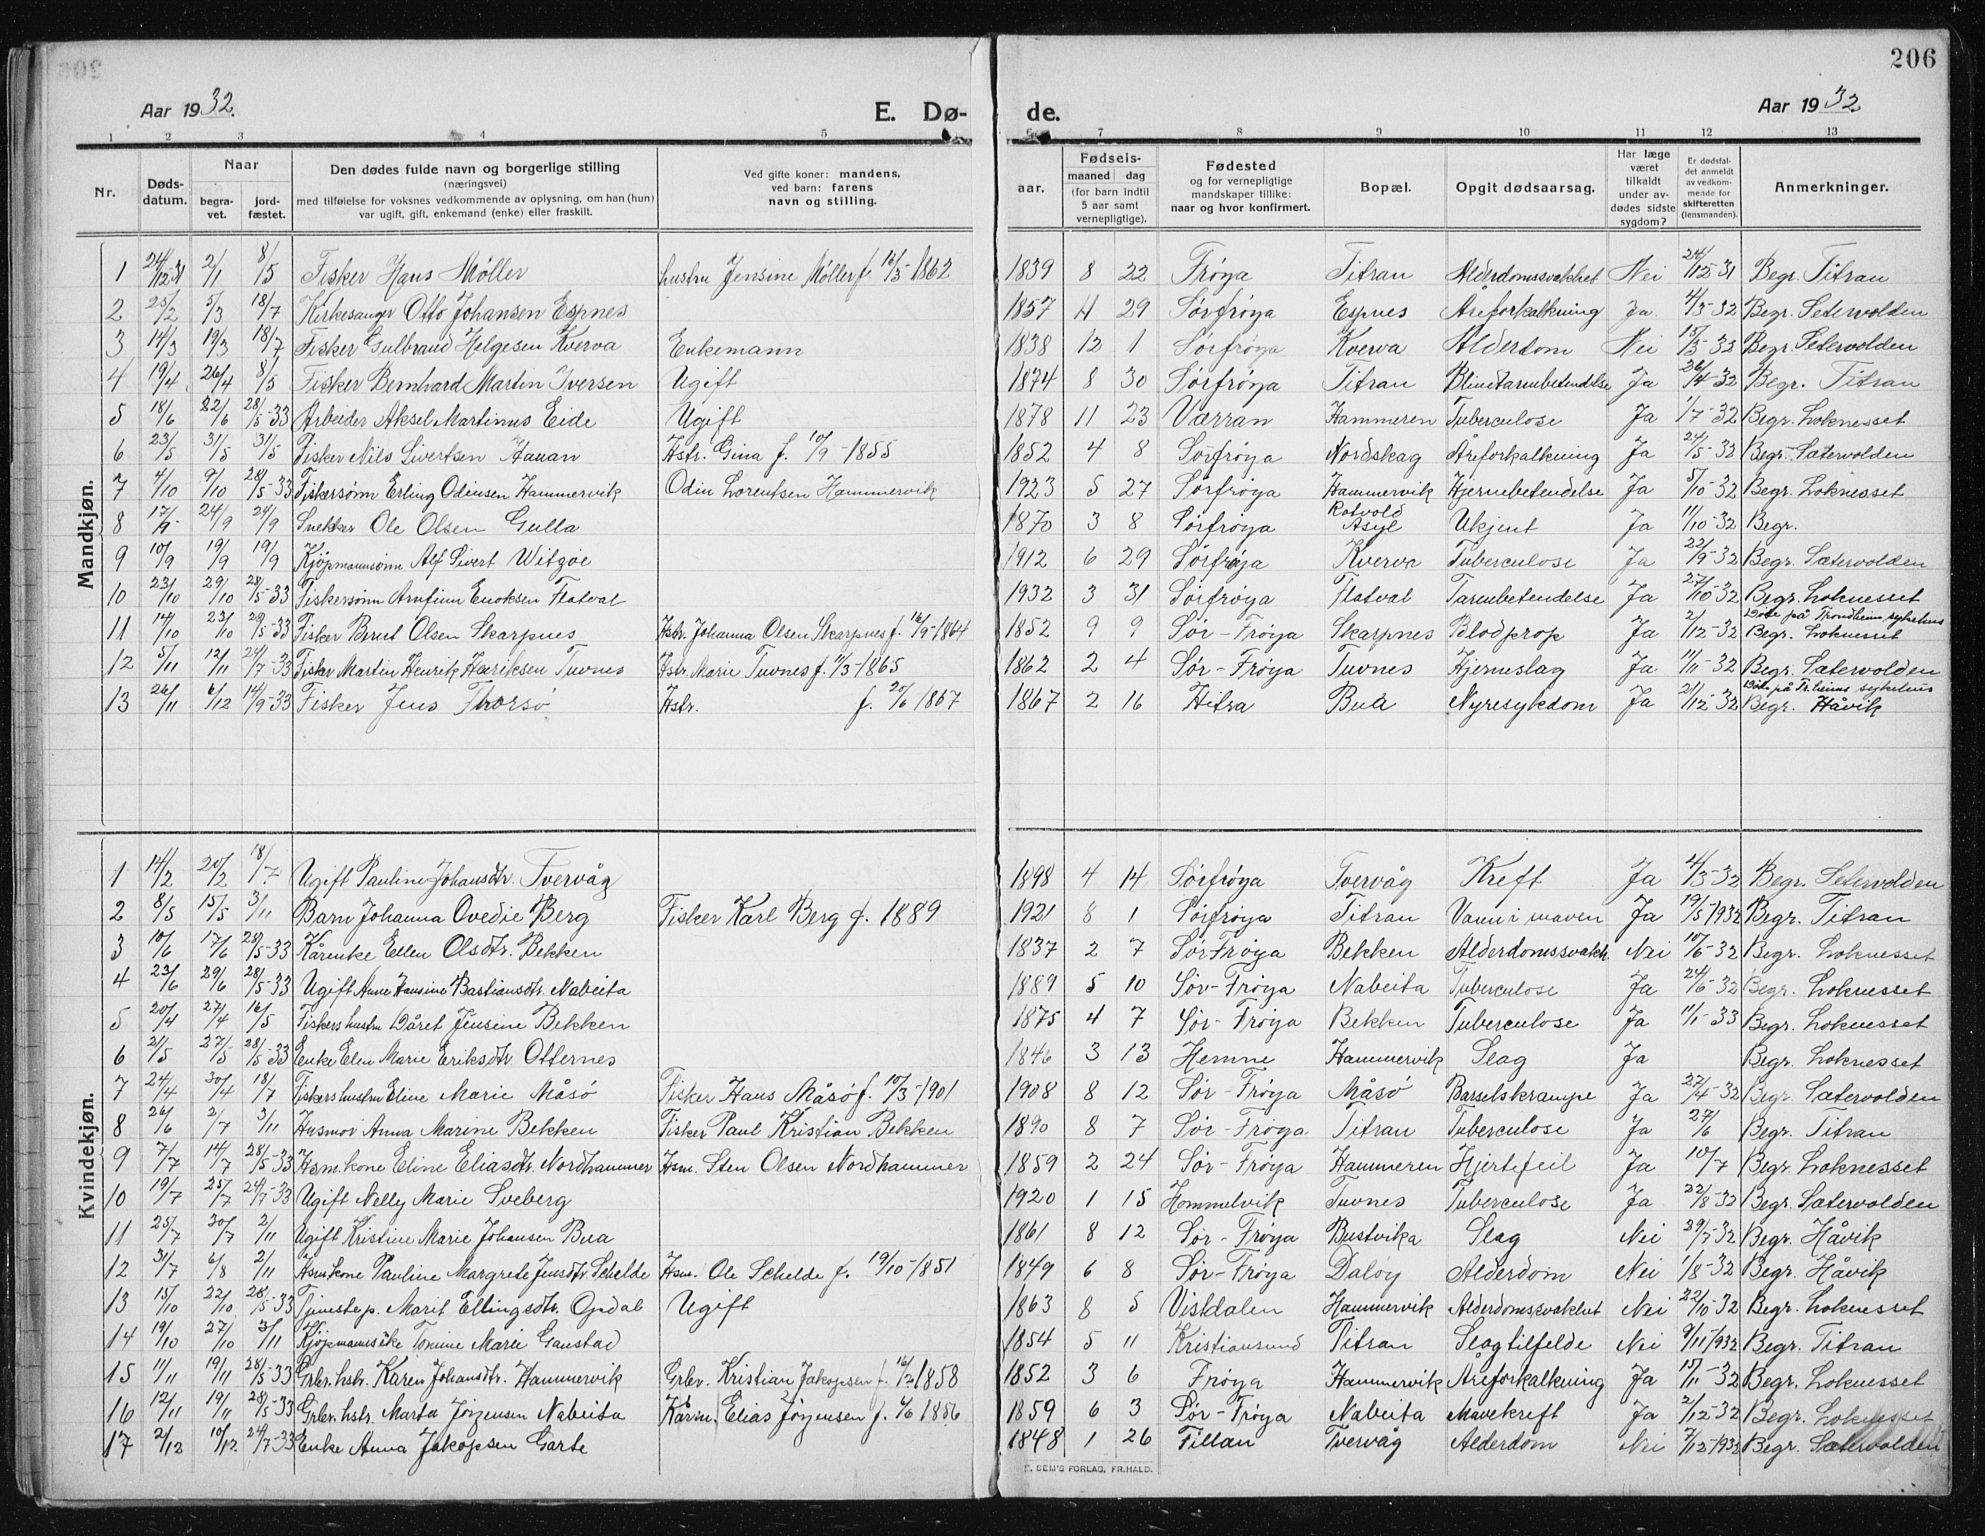 206
Aar 1932.
E. Dø-
de.
Aar 1932
1 2 3 4 5 6 7 8 9 10 11 12 13
Nr.
Døds-
datum.
Naar
begra-
vet.
jord-
fæstet.
Den dødes fulde navn og borgerlige stilling
(næringsvei)
med tilføielse for voksnes vedkommende av oplysning, om han (hun)
var ugift, gift, enkemand (enke) eller fraskilt.
Ved gifte koner: mandens,
ved barn: farens
navn og stilling.
aar.
Fødsels-
maaned dag
(for barn indtil
5 aar samt
vernepligtige).
Fødested
og for vernepligtige
mandskaper tillike:
naar og hvor konfirmert.
Bopæl.
Opgit dødsaarsag.
Har læge
været
tilkaldt
under av-
dødes sidste
sygdom?
Er dødsfal-
det anmeldt
av vedkom-
mende for
skifteretten
(lensmanden).
Anmerkninger.
Mandkjøn.
1 24/12 31 2/1 8/5 Fisker Hans Møller hustru Jensine Møller f. 1862 1839 8 22 Frøya Titran Alderdomssvakhet Nei 24/12-31 Begr. Titran
2 25/2 5/3 18/7 Kirkesanger Otto Johansen Espnes 1857 4 29 Sørfrøya Espnes Åreforkalkning Ja. 4/3-32 Begr. Setervolden
3 14/3 19/3 18/7 Fisker Gulbrand Helgesen Kverva Enkemann 1838 12 1 Sørfrøya Kverva Alderdom Nei 15/3-32 Begr. Setervolden
4 19/4 26/4 8/5 Fisker Bernhard Martin Iversen Ugift 1874 8 30 Sørfrøya Titran Blindtarmbetendelse Ja 26/4-32 Begr. Titran
5 18/6 22/6 28/5-33 Arbeider Aksel Martinus Eide Ugift 1878 11 23 Værran Hammeren Tuberculose Ja 1/7-32 Begr. Loknesset
6 23/5 31/5 31/5 Fisker Nils Sivertsen Hauan Hstr. Gina f. 10/9-1855 1852 4 8 Sørfrøya Nordskag Åreforkalkning Ja 24/5-32 Begr. Sætervolden
7 4/10 9/10 28/5-33 Fiskersønn Erling Odinsen Hammervik Odin Lorentsen Hammervik 1923 5 27 Sørfrøya Hammervik Hjernebetendelse Ja 5/10-32 Begr. Loknesset
8 17/9 24/9 24/9 Snekker Ole Olsen Gulla 1870 3 8 Sørfrøya Rotvold Asyl Ukjent Ja 11/10-32 Begr.
9 10/9 19/9 19/9 Kjøpmannsønn Alf Sivert Witzøe 1912 6 29 Sørfrøja Kverva Tuberculose Ja 22/9-32 Begr. Sætervolden
10 23/10 29/10 28/5-33 Fiskersønn Arnfinn Enoksen Flatval 1932 3 31 Sørfrøya Flatval Tarmbetendelse Ja 27/10-32 Begr. Loknesset
11 14/10 23/10 29/5-33 Fisker Bernt Olsen Skarpnes Hstr. Johanna Olsen Skarpnes f. 16/9-1864 1852 9 9 Sør-Frøya Skarpnes Blodprop Ja 2/12-32 Døde på Trondheim sykehus Begr. Loknesset
12 5/11 12/11 24/7-33 Fisker Martin Henrik Henriksen Tuvnes Hstr. Marie Tuvnes f. 1/3-1865 1862 2 4 Sør-Frøya Tuvnes Hjerneslag Ja 11/11-32 Begr. Sætervolden
13 26/11 6/12 14/9-33 Fisker Jens Thorsø Hstr. f. 20/6 1867 1867 2 16 Hitra Bua Nyresykdom Ja 21/12-32 Døde på Tr.heims sykehus Begr. Håvik
Kvindekjøn.
1 14/2 20/2 18/7 Ugift Pauline Johansdtr. Tvervåg 1898 4 14 Sørfrøya Tvervåg Kreft Ja 4/3-32 Begr. Setervolden
2 8/5 15/5 3/11 Barn Johanna Ovedie Berg Fisker Karl Berg f. 1889 1921 8 1 Sørfrøya Titran Vann i maven Ja 19/5-1932 Begr. Titran
3 10/6 17/6 28/5-33 Kårenke Ellen Olsdtr. Bekken 1837 2 7 Sør Frøya Bekken Alderdomssvakh. Nei 10/6-32 Begr. Loknesset
4 23/6 29/6 28/5-33 Ugift Anne Hansine Bastiansdtr. Nabeita 1889 5 10 Sør-Frøya Nabeita Tuberculose Ja 24/6-32 Begr. Loknesset
5 20/4 27/4 16/5 Fiskers hustru Dåret Jensine Bekken 1875 4 7 Sør-Frøya Bekken Tuberculose Ja 11/1-33 Begr. Loknesset
6 21/5 27/5 28/5-33 Enke Elen Marie Eriksdtr. Otternes 1846 3 13 Hemne Hammervik Slag Ja Begr. Loknesset
7 24/4 30/4 18/7 Fiskers hustru Eline Marie Måsø Fisker Hans Måsø f. 10/3-1901 1908 8 12 Sør-Frøya Måsø Barselskrampe Ja 27/4-32 Begr. Sætervolden
8 26/6 2/7 3/11 Husmor Anna Marine Bekken Fisker Paul Kristian Bekken 1890 8 7 Sør-Frøya Titran Tuberculose Ja 27/6 Begr. Titran
9 7/7 14/7 28/5-33 Hsm.kone Eline Eliasdtr. Nordhammer Hsm. Sten Olsen Nordhammer 1859 2 24 Sør-Frøya Hammeren Hjertefeil Ja 10/7 Begr. Loknesset
10 19/7 25/7 24/7-33 Ugift Nelly Marie Sveberg 1920 1 15 Hommelvik Tuvnes Tuberculose Ja 22/8-32 Begr. Sætervolden
11 25/7 30/7 2/11 Ugift Kristine Marie Johansen Bua 1861 8 12 Sør-Frøya Bustvika Slag Nei 29/7-32 Begr. Håvik
12 31/7 6/8 2/11 Hsm.kone Pauline Margrete Jensdtr. Schelde Hsm. Ole Schelde f. 19/10-1851 1849 6 8 Sør-Frøya Daløy Alderdom Nei 1/8-32 Begr. Håvik
13 15/10 22/10 28/5-33 Tjenestep. Marit Ellingsdtr. Opdal Ugift 1863 8 5 Vistdalen Hammervik Alderdomssvakhet Nei 22/10-32 Begr. Loknesset
14 19/10 27/10 3/11 Kjøpmannsenke Tomine Marie Ganstad 1854 5 11 Kristiansund Titran Slagtilfelde Nei 9/11-1932 Begr. Titran
15 11/11 19/11 28/5-33 Grbr.hstr. Karen Johansdtr. Hammervik Grbr. Kristian Jakopsen f. 16/12 1858 1852 3 6 Frøya Hammervik Åreforkalkning Ja 15/11-32 Begr. Loknesset
16 12/11 19/11 28/5-33 Grbr. hstr. Marta Jørgensen Nabeita Kårm. Elias Jørgensen f. 1856 1859 6 3 Sør-Frøya Nabeita Mavekreft Ja 2/12-32 Begr. Loknesset
17 2/12 10/12 24/7-33 Enke Anna Jakopsen Garte 1848 1 26 Fillan Tvervåg Alderdom Nei 7/12-1932 Begr. Sætervolden
E. SEM'S FORLAG, FR.HALD.